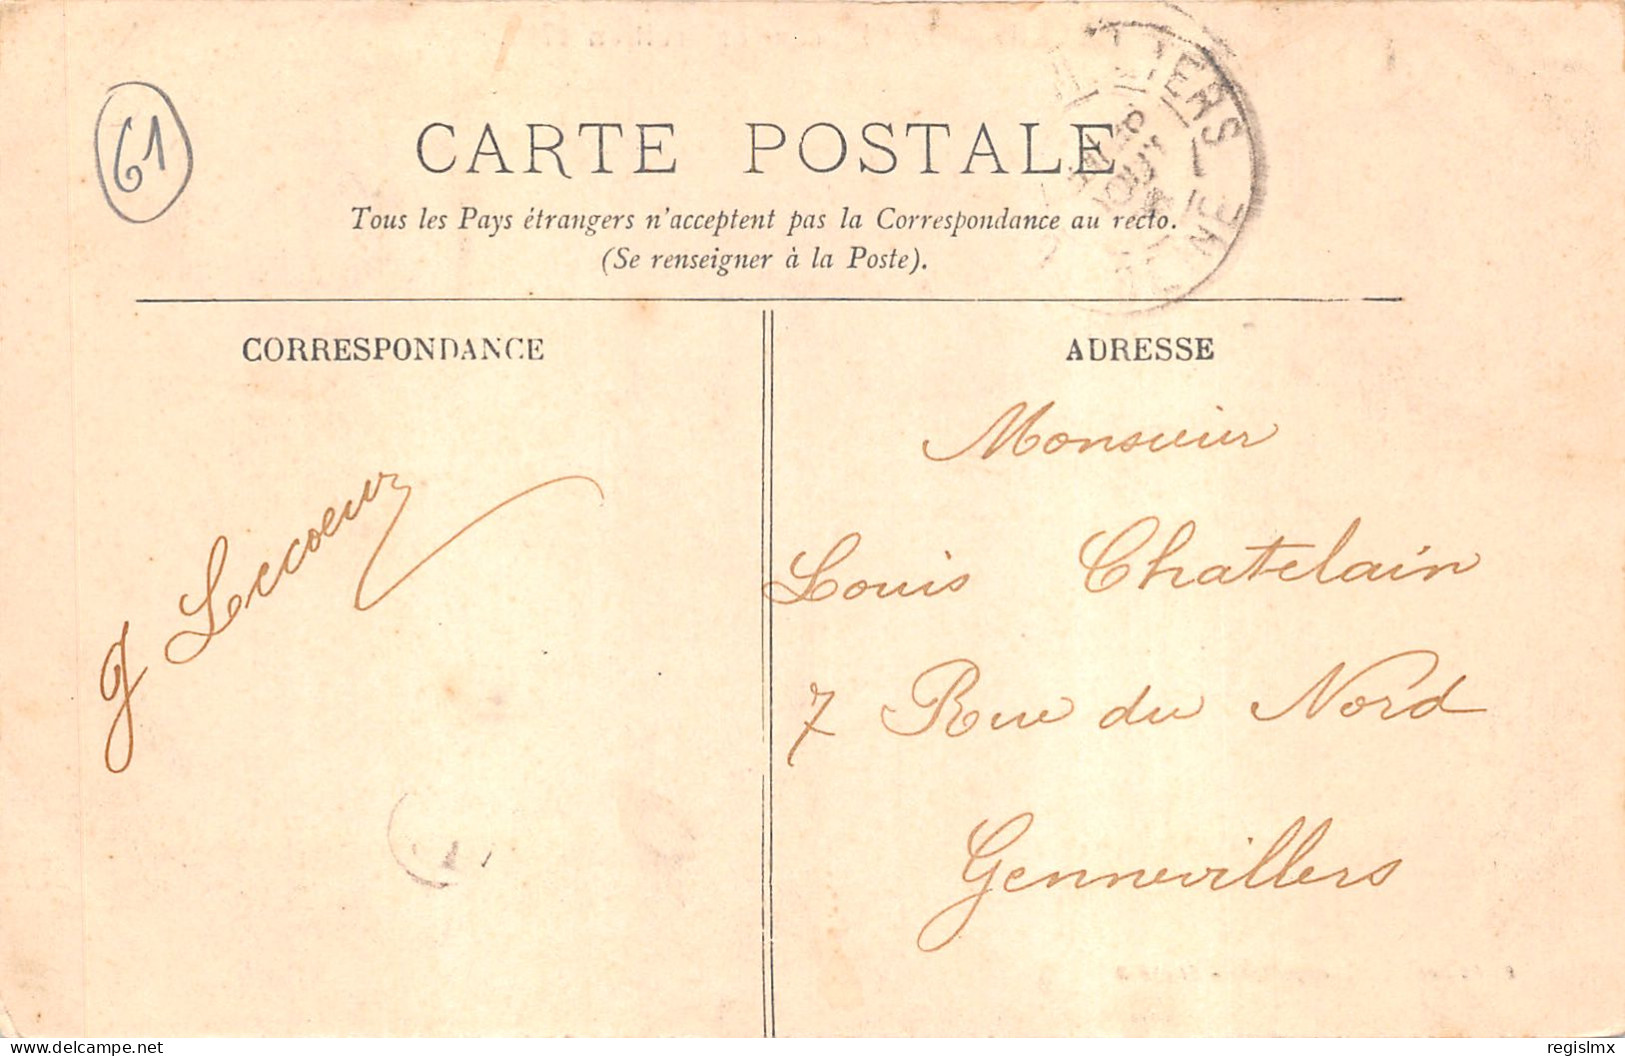 61
CARTE POSTALE
Tous les Pays étrangers n'acceptent pas la Correspondance au recto.
(Se renseigner à la Poste).
CORRESPONDANCE
ADRESSE
J Lecoeur
Monsieur
Louis Chatelain
7 Rue du Nord
Gennevillers
Delcampe.net
regislmx